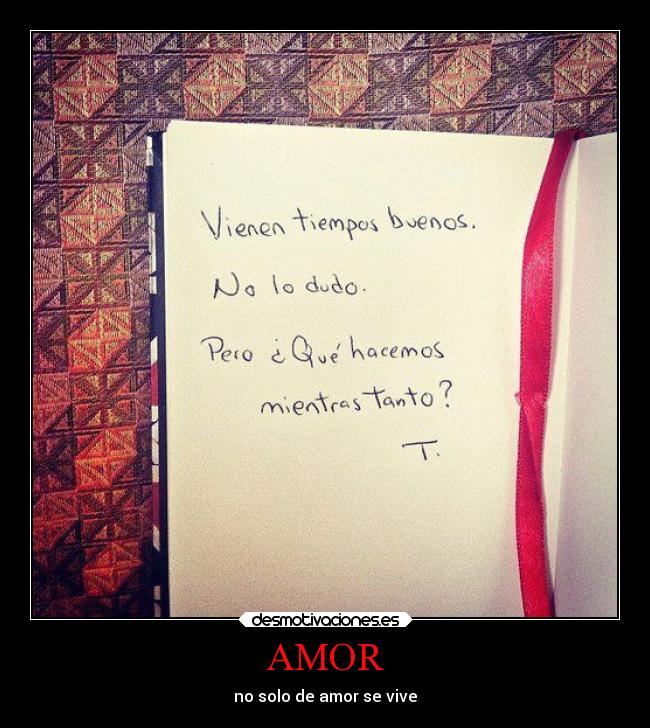 Vienen tiempos buenos.
No lo dudo.
Pero ¿Qué hacemos
mientras tanto?
T.
desmotivaciones.es
AMOR
no solo de amor se vive